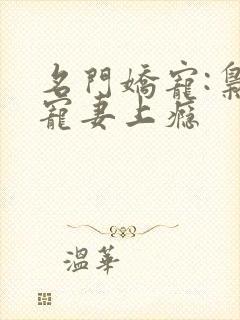 名門嬌寵:梟
寵妻上癮
溫華